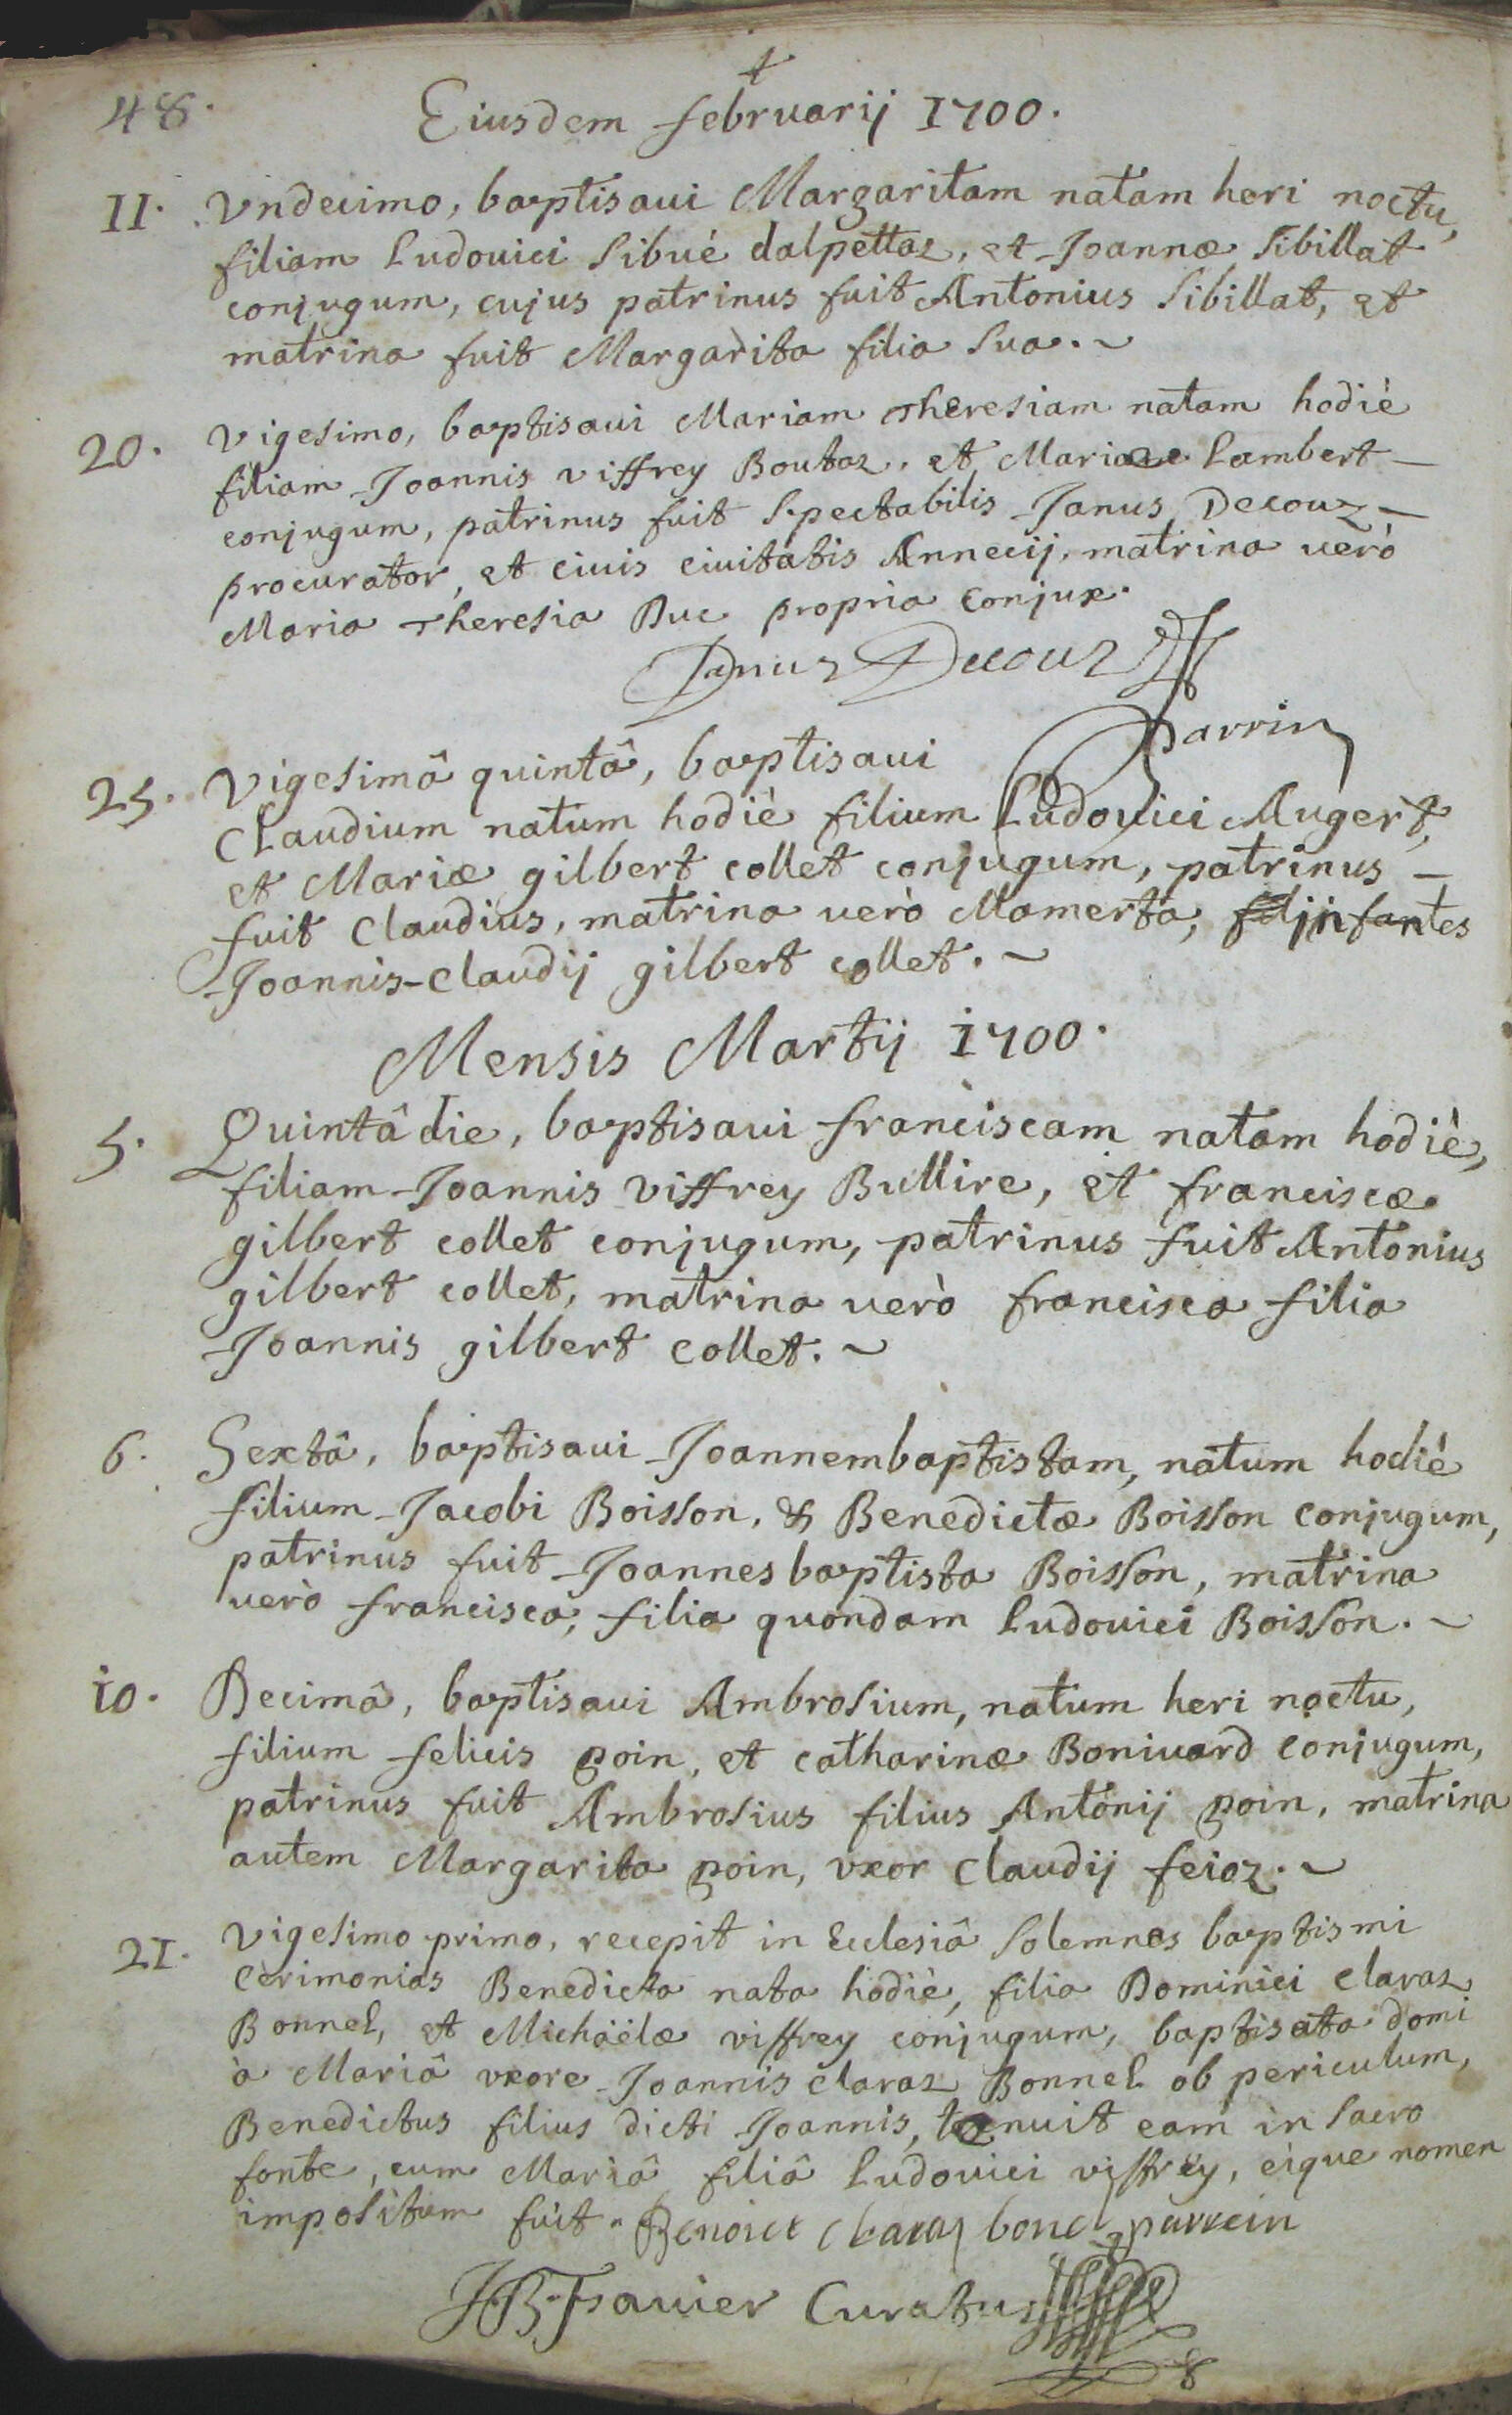 +
48.
Eiusdem februarij 1700.
II. Vndecimo, baptisaui Margaritam natam heri noctu,
filiam Ludouici Sibué dalpettaz, et Joannæ Sibillat
conjugum, cujus patrinus fuit Antonius Sibillat, et
matrina fuit Margarita filia Sua.~
20. Vigesimo, baptisaui Mariam Theresiam natam hodiè
filiam Joannis viffrey Boutaz, et Mariæ Lambert —
conjugum, patrinus fuit Spectabilis Janus Decouz —
procurator, et ciuis ciuitatis Annecij, matrina verò
Maria Theresia Duc propria conjux.
Janus Decouz
Parrin
25. Vigesimâ quintâ, baptisaui
Claudium natum hodiè filium Ludouici Augert,
et Mariæ gilbert collet conjugum, patrinus —
fuit Claudius, matrina verò Mamerta, infantes
Joannis-Claudij gilbert collet.~
Mensis Martij 1700.
5. Quintâ die, baptisaui franciscam natam hodiè,
filiam Joannis Viffrey Bullire, et franciscæ
gilbert collet conjugum, patrinus fuit Antonius
gilbert collet, matrina verò francisca filia
Joannis gilbert collet.~
6. Sextâ, baptisaui Joannembaptistam, natum hodiè
filium Jacobi Boisson, & Benedictæ Boisson conjugum,
patrinus fuit Joannesbaptista Boisson, matrina
verò francisca, filia quondam Ludouici Boisson.~
10. Decimâ, baptisaui Ambrosium, natum heri noctu,
filium felicis goin, et catharinæ Boniuard conjugum,
patrinus fuit Ambrosius filius Antonij goin, matrina
autem Margarita goin, vxor Claudij feioz.~
21. Vigesimo primo, recepit in Ecclesiâ Solemnes baptismi
Cerimonias Benedicta nata hodiè, filia Dominici Claraz
Bonnel, et Michaëlæ viffrey conjugum, baptisata domi
à Mariâ vxore Joannis Claraz Bonnel ob periculum,
Benedictus filius dicti Joannis, tenuit eam in Sacro
fonte, cum Mariâ filiâ Ludouici viffrey, eique nomen
impositum fuit. Benoict Claraz bonel parrein
JB. Favier Curatus